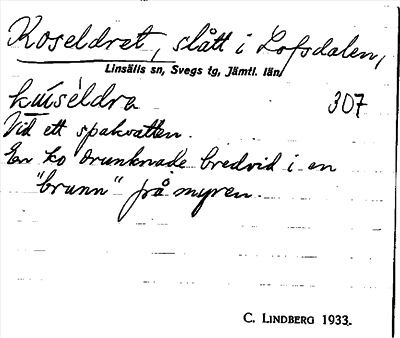 Koseldret, slått i Lofsdalen,
Linsälls sn, Svegs tg, Jämtl. län
kúɪsèldra 307
Vid ett spakvatten.
En ko drunknade bredvid i en
"brunn" på myren.
C. LINDBERG 1933.